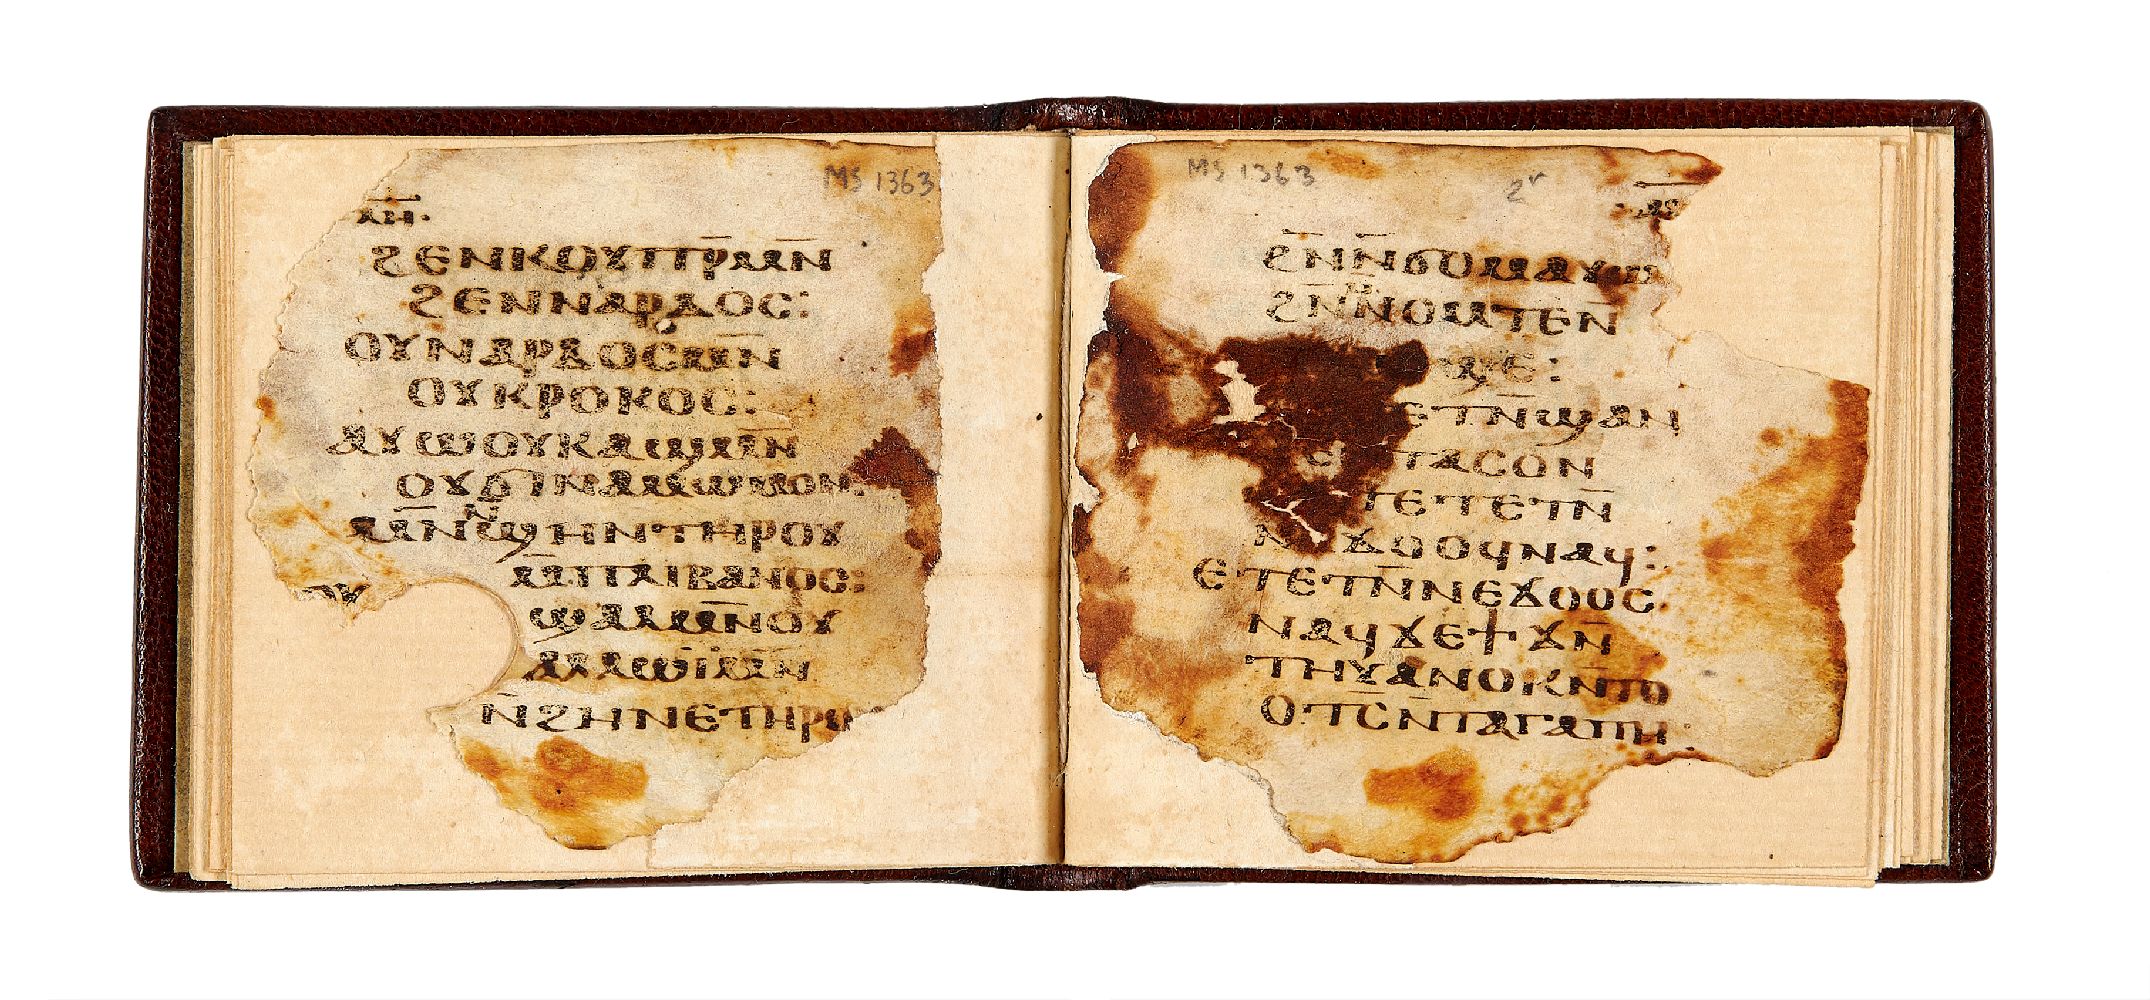 MS 1363
ϩⲉⲛⲕⲟⲩⲡⲣ̄ⲙⲛ̄
ϩⲉⲛⲛⲁⲣⲇⲟⲥ:
ⲟⲩⲛⲁⲣⲇⲟⲥⲙⲛ̄
ⲟⲩⲕⲣⲟⲕⲟⲥ:
ⲁⲩⲱⲟⲩⲕⲁϣⲙⲛ̄
ⲟⲩϭⲓⲛⲁⲙⲱⲙⲟⲛ:
ⲙⲛ̄ⲛϣⲏⲛⲧⲏⲣⲟⲩ
ⲙ̄ⲡⲗⲓⲃⲁⲛⲟⲥ:
ϣⲁⲗⲙ̄ⲛⲟⲩ
ⲁⲗⲱⲓⲙⲛ̄
ⲛ̄ϩⲏⲛⲉⲧⲏⲣⲟⲩ
MS 1363 2r
ϩⲛ̄ⲛ̄ϭⲟⲙⲁⲩⲱ
ϩⲛ̄ⲛ̄ⲛⲟⲙⲧⲉⲛ̄
ϣⲉ:
ⲉⲧⲛ̄ϣⲁⲛ
ⲡⲁⲥⲟⲛ
ⲡⲉⲧⲉⲧⲛ̄
ϫⲟⲟϥⲛⲁϥ:
ⲉⲧⲉⲧⲛ̄ⲛⲉϫⲟⲟⲥ
ⲛⲁϥϫⲉϯϫⲛ̄
ⲧⲏⲩⲁⲛⲟⲕⲛ̄ⲧⲟ
ⲟⲧⲥ̄ⲛ̄ⲧⲁⲅⲁⲡⲏ: